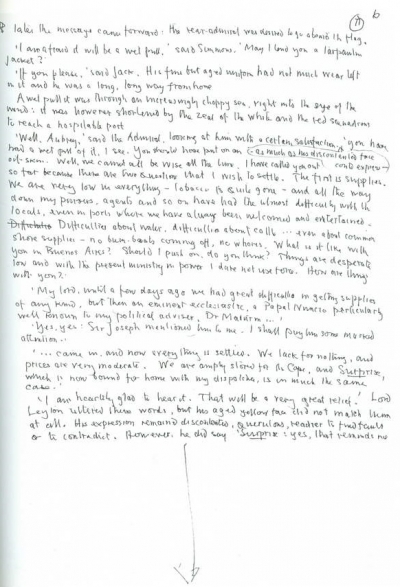 6
11
later the message came forward: the rear-admiral was desired to go aboard the flag.
'I am afraid it will be a wet pull,' said Simmons. 'May I lend you a tarpaulin
jacket?'
'If you please,' said Jack. His fine but aged uniform had not much wear left
in it and he was a long, long way from home
A wet pull it was through an increasingly choppy sea, right into the eye of the
wind: it was however shortened by the zeal of the white and the red squadrons
to reach a hospitable port
'Well, Aubrey,' said the Admiral, looking at him with a certain satisfaction, 'you have
had a wet pull of it, I see. You should have put on an (as much as his discontented face
oil-skin. Well, we cannot all be wise all the time. I have called you out could express) -
so far because there are two questions that I wish to settle. The first is supplies.
We are very low in everything - tobacco is quite gone - and all the way
down my pursers, agents and so on have had the utmost difficulty with the
locals, even in ports where we have always been welcomed and entertained -
Difficulties about water, difficulties about cattle ... even about common
shore supplies - no bum-boats coming off, no whores. What is it like with
you in Buenos Aires? Should I push on, do you think? Things are desperate
low and with the present ministry in power I dare not use force. How are things
with you?'
'My lord, until a few days ago we had great difficulties in getting supplies
of any kind, but then an eminent ecclesiastic, a Papal Nuncio particularly
well known to my political adviser, Dr Maturin ...'
'Yes, yes: Sir Joseph mentioned him to me. I shall pay him some marked
attention...'
'... came in, and now everything is settled. We lack for nothing, and
prices are very moderate. We are amply stored to the Cape, and Surprise,
which is now bound for home with my dispatches, is in much the same
case.'
'I am heartily glad to hear it. That will be a very great relief.' Lord
Leyton uttered these words, but his aged yellow face did not match them
at all. His expression remained discontented, querulous, readier to find fault
or to contradict. However he did say 'Surprise: yes, that reminds me